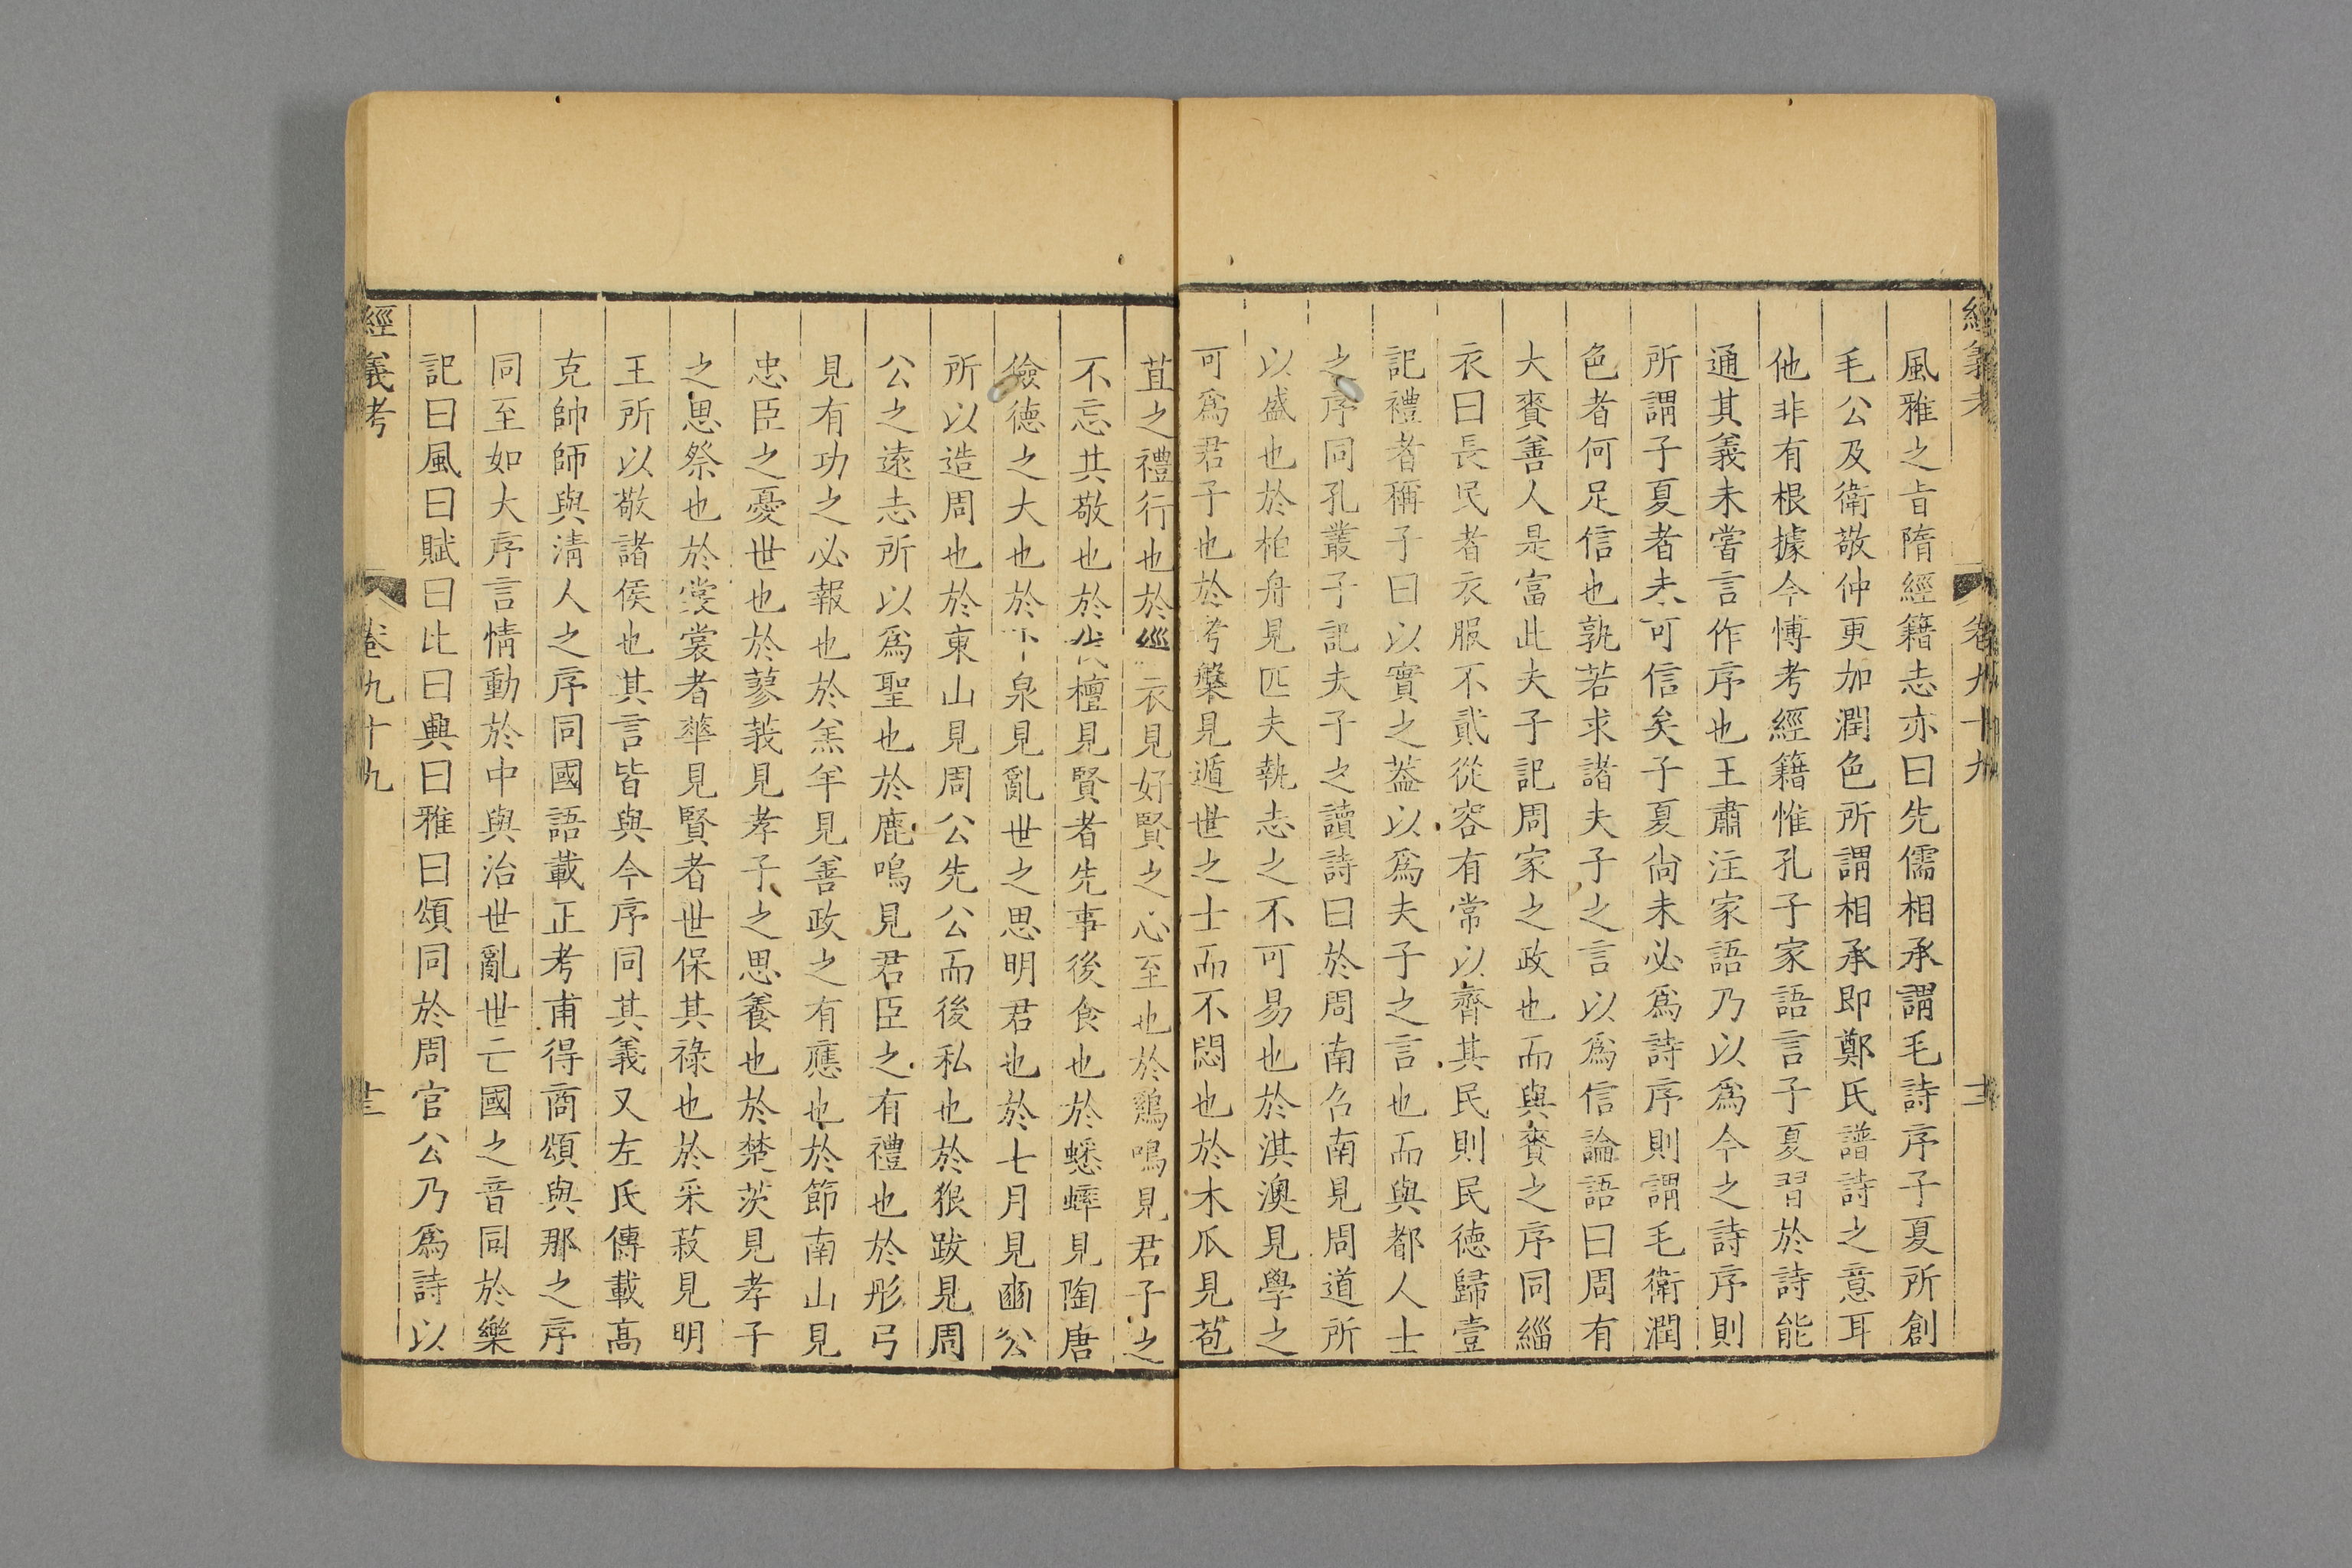 經義考
卷九十九
風雅之㫖隋經籍志亦曰先儒相承謂毛詩序子夏所創
毛公及衛敬仲更加潤色所謂相承即鄭氏譜詩之意耳
他非有根據今博考經籍惟孔子家語言子夏習於詩能
通其義未嘗言作序也王肅注家語乃以爲今之詩序則
所謂子夏者未可信矣子夏尙未必爲詩序則謂毛衛潤
色者何足信也孰若求諸夫子之言以爲信論語曰周有
大賚善人是富此夫子記周家之政也而與賚之序同緇
衣曰長民者衣服不貳從容有常以齊其民則民德歸壹
記禮者稱子曰以實之葢以爲夫子之言也而與都人士
之序同孔叢子記夫子之讀詩曰於周南召南見周道所
以盛也於柏舟見匹夫執志之不可易也於淇澳見學之
可爲君子也於考槃見遁世之士而不悶也於木瓜見苞
苴之禮行也於緇衣見好賢之心至也於鷄鳴見君子之
不忘其敬也於伐檀見賢者先事後食也於蟋蟀見陶唐
儉德之大也於下泉見亂世之思明君也於七月見豳公
所以造周也於東山見周公先公而後私也於狼跋見周
公之遠志所以爲聖也於鹿鳴見君臣之有禮也於彤弓
見有功之必報也於羔羊見善政之有應也於節南山見
忠臣之憂世也於蓼莪見孝子之思養也於楚茨見孝子
之思祭也於裳裳者華見賢者世保其祿也於采菽見明
王所以敬諸侯也其言皆與今序同其義又左氏傳載高
克帥師與淸人之序同國語載正考甫得商頌與那之序
同至如大序言情動於中與治世亂世亡國之音同於樂
記曰風曰賦曰比曰興曰雅曰頌同於周官公乃爲詩以
經義考
卷九十九
十三